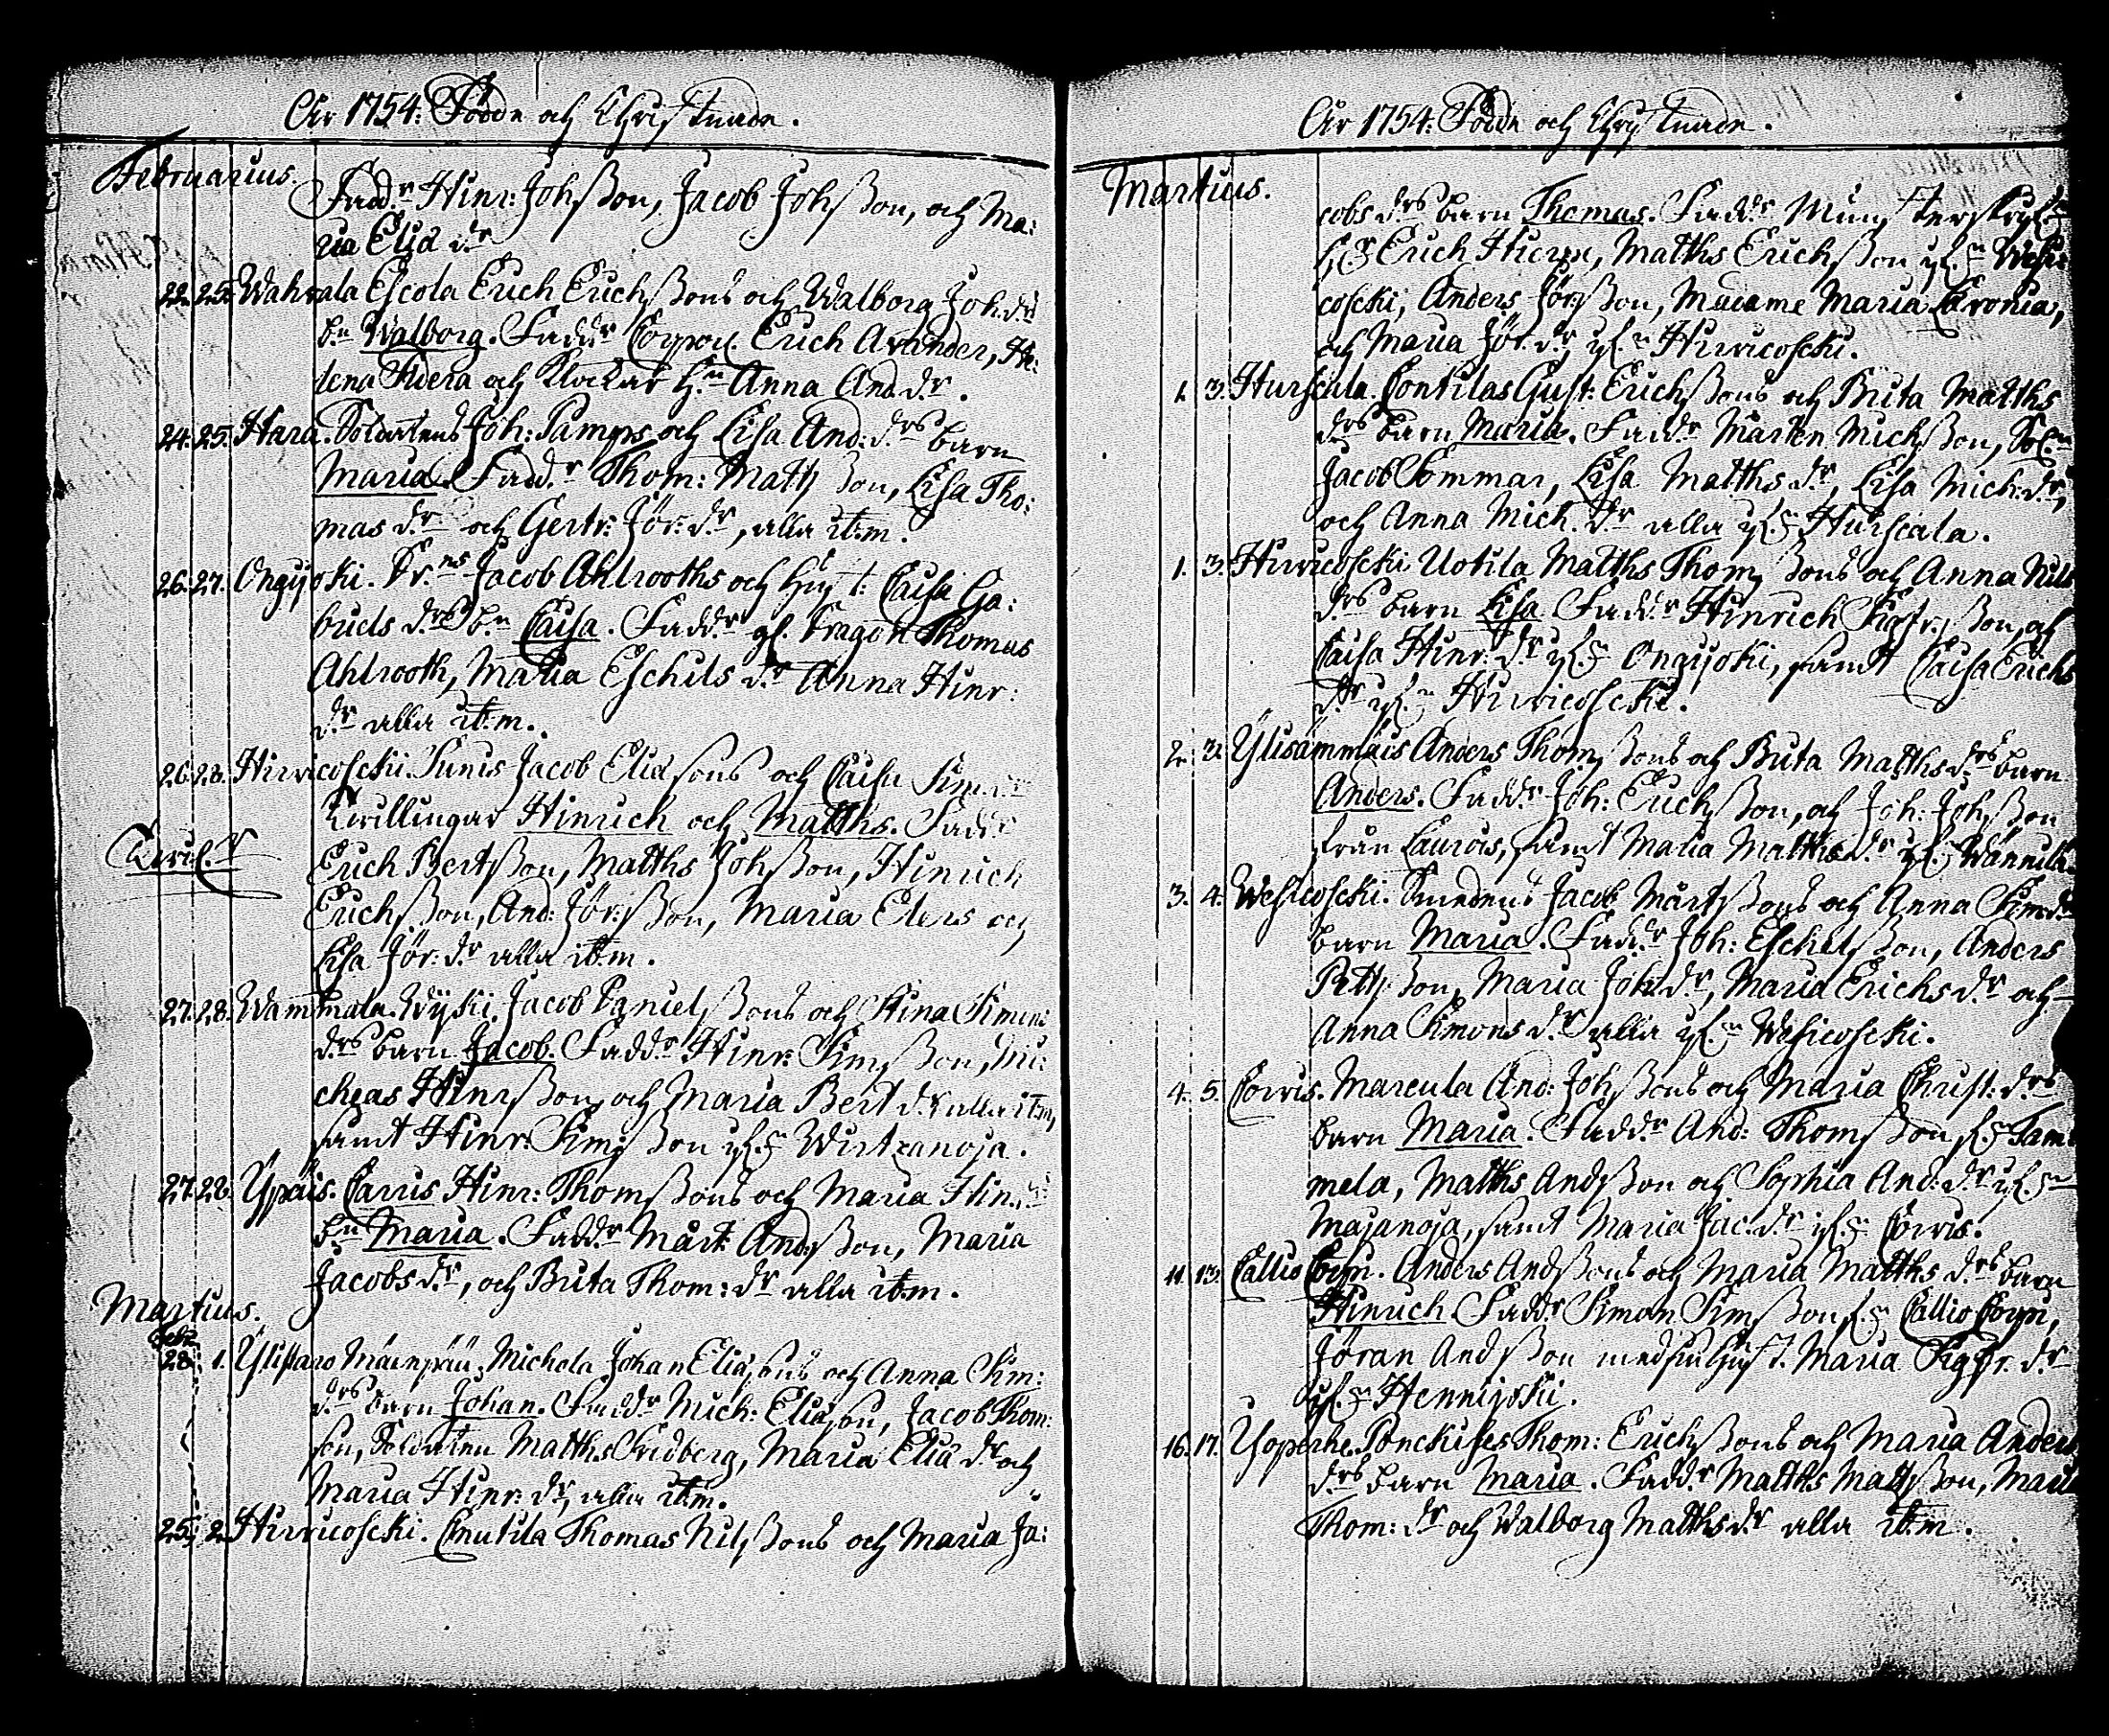 År 1754: Födde och Christnade.
Februarius.
Fadd:r Hinr: Johsson, Jacob Johsson, och Ma:
ria Eliæ d:r
22. 25. Wahrala Escola Erich Erichssons och Walborg Joh:d:rs
b:n Walborg. Fadd:r Corporal Erich Arander, He:
lena Fidera och Klockar H:n Anna And:d:r.
24. 25. Hara. Soldatens Joh: Pamps och Lisa And:d:rs barn
Maria. Fadd:r Thom: Mattsson, Lisa Tho:
mas d:r och Gertr: Jör:d:r, alla it:m.
26. 27. Ongijoki. Dr:ns Jacob Ahlrooths och Hust: Caisa Ga:
briels d:rs b:n Caisa. Fadd:r gl. Dragon Thomas
Ahlrooth, Maria Eschils d:r Anna Hinr:
d:r alla it:m.
26. 28. Hirvicoscki. Junis Jacob Eliæ sons och Caisa Sim:
Tvillingar Hinrich och Matths. Fadd:r
Erich Bertsson, Matths Johsson, Hinrich
Erichsson, And: Jörsson, Maria Elers och
Lisa Jör:d:r alla it:m.
27. 28. Wammala. Wÿki. Jacob Danielssons och Stina Simons
d:rs barn Jacob. Fadd:r Hinr: Simsson, Mi:
cheas Hinrsson och Maria Bert d:r alla it:m,
samt Hinr: Simsson if:n Wirtzanoja.
27. 28. Ypäis. Carris Hinr: Thomssons och Maria Hinr:
b:n Maria. Fadd:r Mårt: Andsson, Maria
Jacobsd:r, och Brita Thom:d:r alla it:m.
Martius.
Feb:
28. 1. Ylistaro Mäenpää. Michola Johan Eliæsons och Anna Sim:
d:rs barn Johan. Fadd:r Mich: Eliæson, Jacob Thom:
son, Soldaten Matths Fridberg, Maria Eliæ d:r och
Maria Hinr:d:r, alla it:m.
25. 2. Hirvicoscki. Cnutila Thomas Nilssons och Maria Ja:
År 1754: Födde och Christnade.
Martius.
cobs d:rs barn Thomas. Fadd:r
H:r Erich Hierpe, Matths Erichsson if:n Wesi:
coscki, Anders Jörsson, Madame Maria Cronia,
och Maria Jör:d:r if:n Hirvicoscki.
1. 3. Hurscala. Contilas Gust: Erichssons och Brita Matths
d:rs barn Maria. Fadd:r Mårten Michsson, Sol:n
Jacob Sommar, Lisa Matths d:r, Lisa Mich:d:r,
och Anna Mich:d:r alla if:n Hurscala.
1. 3. Hirvicoscki Uotila Matths Thomssons och Anna Nils
d:rs barn Lisa. Fadd:r Hinrich Sigfrsson, och
Caisa Hinr:d:r if:n Ongijoki, samt Caisa Erichs
d:r if:n Hirvicoscki.
2. 3. Ylisämmäis Anders Thomssons och Brita Matthsd:rs barn
Anders. Fadd:r Joh: Erichsson, och Joh: Johsson
från Laurois, samt Maria Matthsd:r if:n Wännilä.
3. 4. Wesicoscki. Smedens Jacob Mårtssons och Anna Simd:rs
barn Maria. Fadd:r Joh: Eschelsson, Anders
Pettsson, Maria Joh:d:r, Maria Erichsd:r och
Anna Simons d:r alla if:n Wesicoscki.
4. 5. Corvis. Marcula And: Johssons och Maria Christ:d:rs
barn Maria. Fadd:r And: Thomsson if:n Tam:
mela, Matths Andsson och Sophia And:d:r if:n
Majanoja, samt Maria Jac:d:r if:n Corvis.
11. 13. Callio Coyn. Anders Andssons och Maria Matths d:rs barn
Hinrich. Fadd:r Simon Simsson if:n Callio Coyn,
Jöran Andsson med sin Hust. Maria Sigfr:d:r
if:n Hennijoki.
16. 17. Yoperhe. Ponckises Thom: Erichssons och Maria Anders
d:rs barn Maria. Fadd:r Matths Mattsson, Maria
Thom:d:r och Walborg Matthsd:r alla it:m.